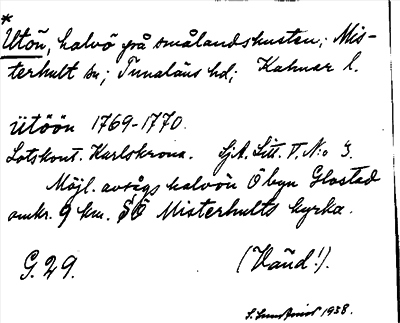 *
Utön, halvö på smålandskusten; Mis-
terhult sn; Tunaläns hd; Kalmar l.
ütöön 1769-1770.
Lotskont. Karlskrona. SjA. Litt. T. N:o 3.
Möjl. avságs halvön Ö byn Glostad
omkr. 9 km. SÖ Misterhults kyrka.
G. 29. (Vänd!).
1938.